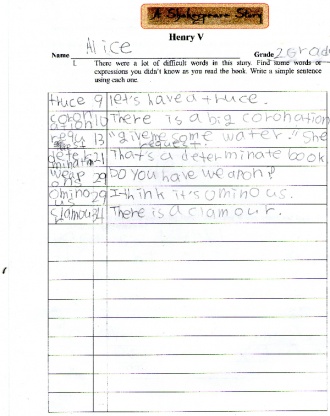 A Shakespeare Story
Henry V
Name Alice Grade 2 Grade
1. There were a lot of difficult words in this story. Find some words or
expressions you didn't know as you read the book. Write a simple sentence
using each one.
truce 9 let's have a truce.
coron ation 10 There is a big coronation
13 "give me some water." She request.
determination 21 That's a determinate book
weap ons 29 Do you have weapon?
omino us 29 I think it's ominous.
There is a clamour.